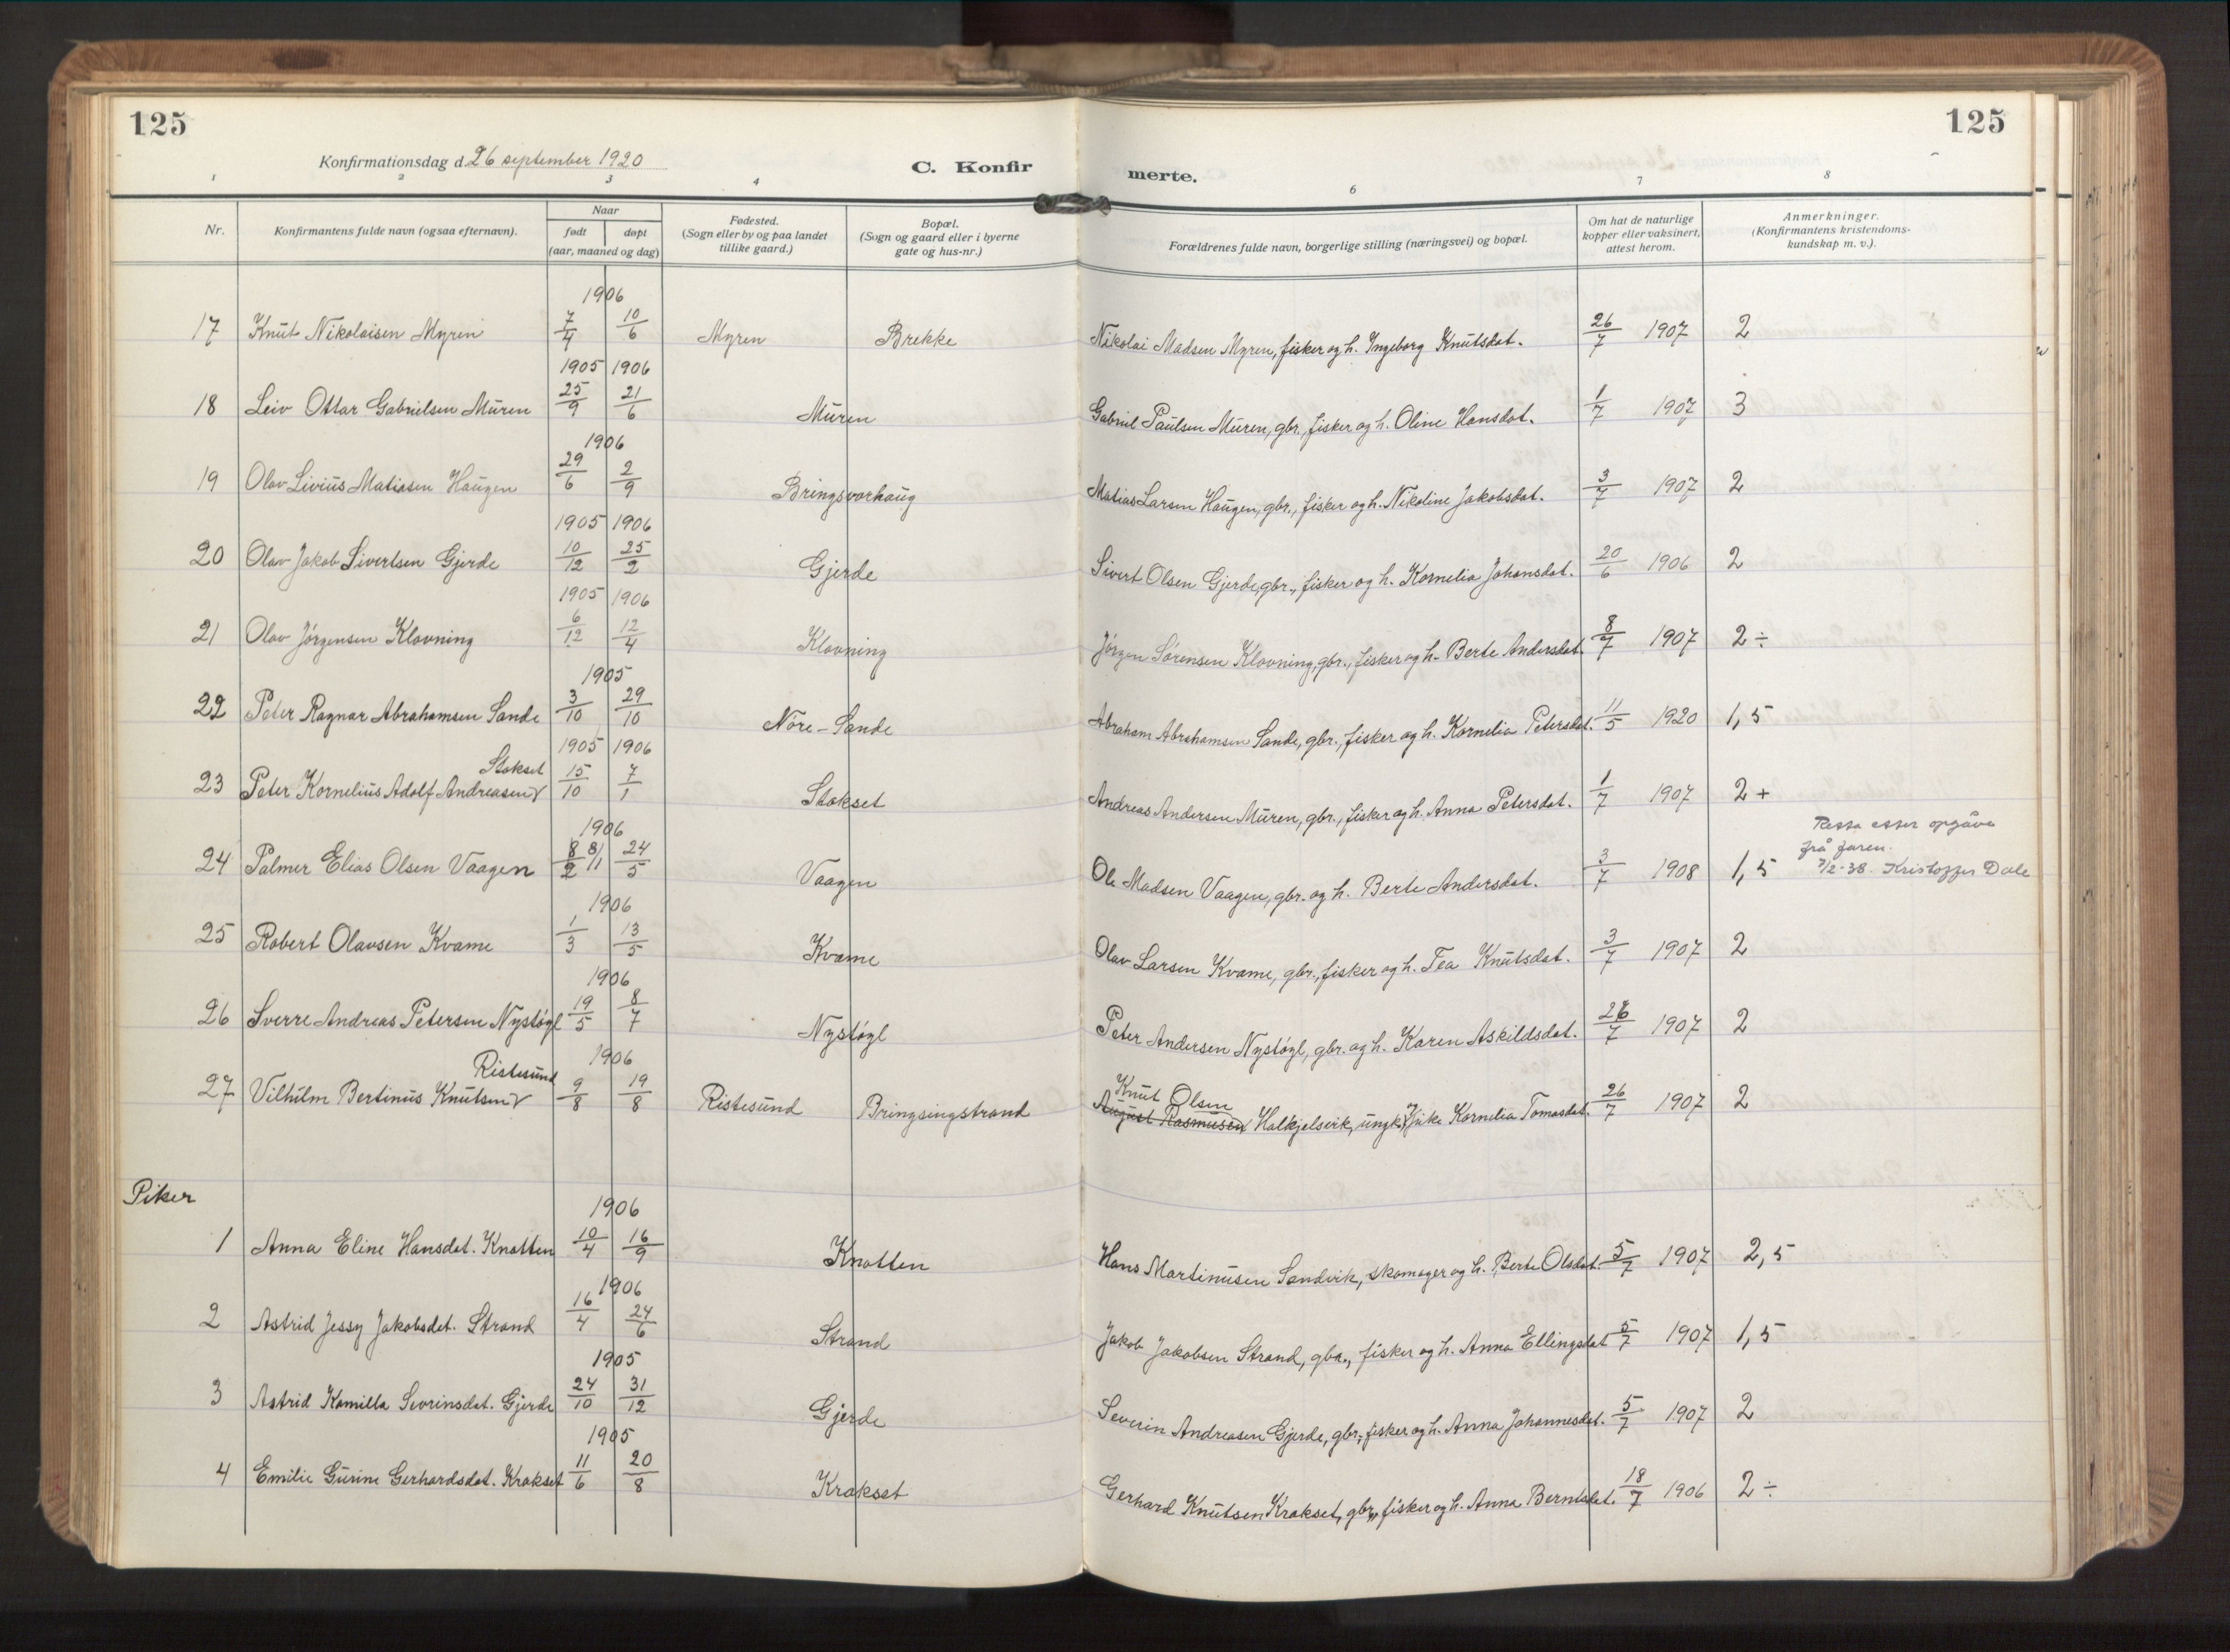 125
125
Konfirmationsdag d. 26 september 1920
C. Konfir
merte.
1 2 3 4 6 7 8
Nr.
Konfirmantens fulde navn (ogsaa efternavn).
Naar
født døpt
(aar, maaned og dag)
Fødested.
(Sogn eller by og paa landet
tillike gaard.)
Bopæl.
(Sogn og gaard eller i byerne
gate og hus-nr.)
Forældrenes fulde navn, borgerlige stilling (næringsvei) og bopæl.
Om hat de naturlige
kopper eller vaksinert,
attest herom.
Anmerkninger.
(Konfirmantens kristendoms-
kundskap m. v.).
1906
17 Knut Nikolaisen Myren 7/4 10/6 Myren Brekke Nikolai Madsen Myren, fisker og h. Ingeborg Knutsdat. 26/7 1907 2
1905 1906
18 Leiv Ottar Gabrielsen Muren 25/9 21/6 Muren Gabriel Paulsen Muren, gbr., fisker og h. Oline Hansdat. 1/7 1907 3
1906
19 Olav Livius Matiasen Haugen 29/6 2/9 Bringsvorhaug Matias Larsen Haugen, gbr., fisker og h. Nikoline Jakobsdat. 3/7 1907 2
1905 1906
20 Olav Jakob Sivertsen Gjerde 10/12 25/2 Gjerde Sivert Olsen Gjerde, gbr., fisker og h. Kornelia Johansdat. 20/6 1906 2
1905 1906
21 Olav Jörgensen Klovning 6/12 12/4 Klovning Jörgen Sörensen Klovning, gbr., fisker og h. Berte Andersdat. 8/7 1907 2 ÷
1905
22 Peter Ragnar Abrahamsen Sande 3/10 29/10 Nöre-Sande Abraham Abrahamsen Sande, gbr., fisker og h. Kornelia Petersdat. 11/5 1920 1,5
Stokset 1905 1906
23 Peter Kornelius Adolf Andreasen 15/10 7/1 Stokset Andreas Andersen Muren, gbr., fisker og h. Anna Petersdat. 1/7 1907 2 +
1906
24 Palmer Elias Olsen Vaagen 8/2 8/1 24/5 Vaagen Ole Madsen Vaagen, gbr. og h. Berte Andersdat. 3/7 1908 1,5
Retta etter opgåve
frå faren.
7/2-38. Kristoffer Dale
1906
25 Robert Olavsen Kvame 1/3 13/5 Kvame Olav Larsen Kvame, gbr., fisker og h. Tea Knutsdat. 3/7 1907 2
1906
26 Sverre Andreas Petersen Nystöyl 19/5 8/7 Nystöyl Peter Andersen Nystöyl, gbr. og h. Karen Askildsdat. 26/7 1907 2
Ristesund 1906
Knut Olsen
27 Vilhelm Bertinus Knutsen 9/8 19/8 Ristesund Bringsingstrand August Rasmusen Halkjelsvik, ungk., Pike Kornelia Tomasdat. 26/7 1907 2
Piker
1906
1 Anna Eline Hansdat. Knotten 10/4 16/9 Knotten Hans Martinusen Sandvik, skomager og h. Berte Olsdat. 5/7 1907 2,5
1906
2 Astrid Jessy Jakobsdat. Strand 16/4 24/6 Strand Jakob Jakobsen Strand, gbr., fisker og h. Anna Ellingsdat 5/7 1907 1,5
1905
3 Astrid Kamilla Sevrinsdat. Gjerde 24/10 31/12 Gjerde Severin Andreasen Gjerde, gbr., fisker og h. Anna Johannesdat. 5/7 1907 2
1905
4 Emilie Gurine Gerhardsdat. Krakset 11/6 20/8 Krakset Gerhard Knutsen Krakset, gbr., fisker og h. Anna Berntsdat. 18/7 1906 2 ÷